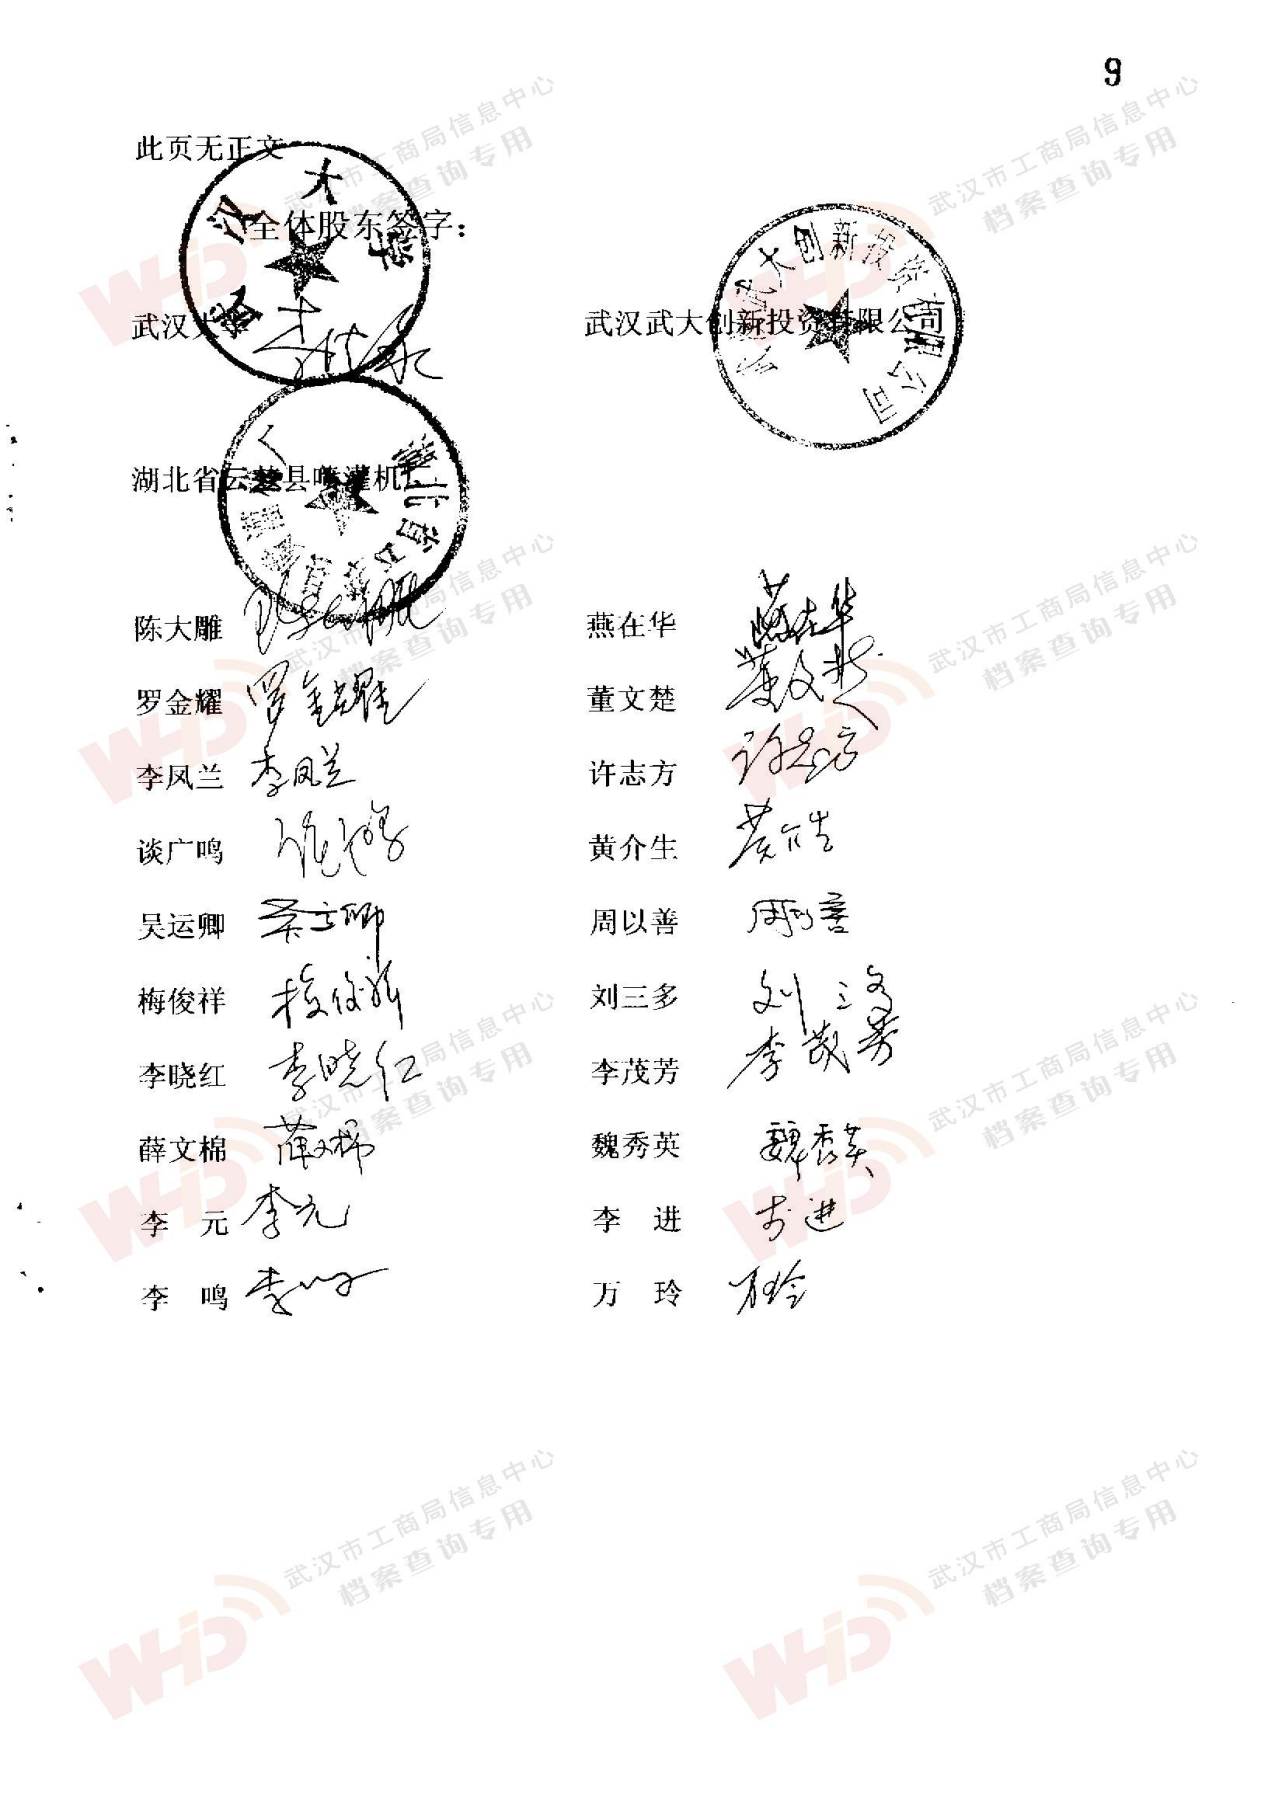 9
此页无正文
全体股东签字：
武汉大学
武汉武大创新投资有限公司
湖北省云梦县喷灌机厂
陈大雕 燕在华 燕在华
罗金耀 罗金耀 董文楚 董文楚
李凤兰 李凤兰 许志方 许志方
谈广鸣 黄介生 黄介生
吴运卿 周以善 周以善
梅俊祥 梅俊祥 刘三多 刘三多
李晓红 李晓红 李茂芳 李茂芳
薛文棉 薛文棉 魏秀英 魏秀英
李 元 李元 李 进 李进
李 鸣 李鸣 万 玲 万玲
武汉大学
武汉武大创新投资有限公司
WHD
武汉市工商局信息中心
档案查询专用